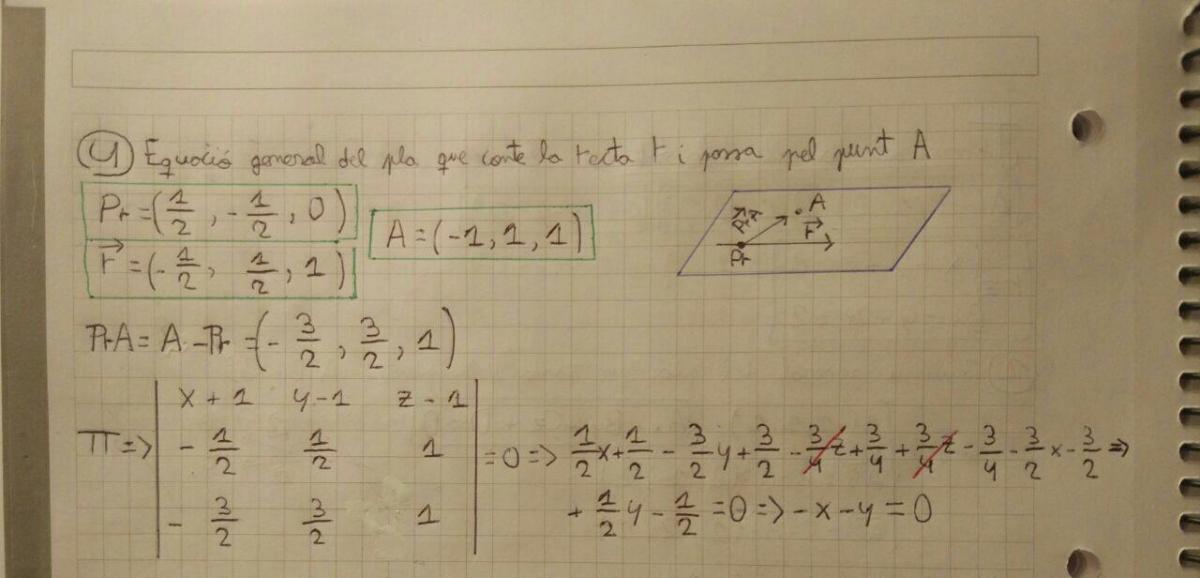 4) Equació general del pla que conte la recta r i passa pel punt A
Pr=(1/2, -1/2, 0)
A=(-1,1,1)
r⃗=(-1/2, 1/2, 1)
A
r⃗
Pr
PrA= A-Pr =(-3/2, 3/2, 1)
x+1 y-1 z-1
π=> -1/2 1/2 1 =0=> 1/2x+1/2-3/2y+3/2-3/4z+3/4+3/4z-3/4-3/2x-3/2=>
-3/2 3/2 1
+1/2y-1/2=0=>-x-y=0